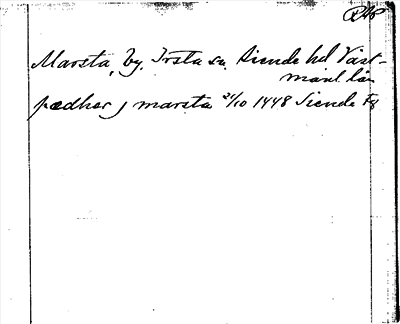 RAp
Marsta, by, Irsta sn Siende hd Väst-
manl. län
pædhar j marsta 21/10 1448 Siende Fg